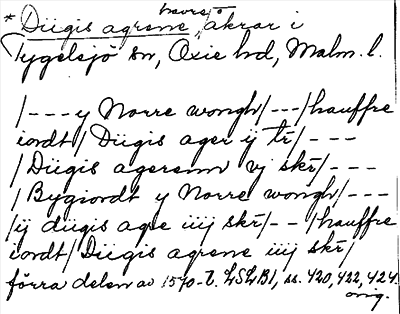 * Diigis agrene, åkrar i
Tygelsjö sn, Oxie hd, Malm. l.
/--- y Norre wongh/---/hauffre
iordt/ Diigis ager ij tr/---
/Diigis agerenn vj skr/---
/Bygiordt y Norre wongh/---
/ij diigis agre iiij skr/--/hauffre
iordt/ Diigis agrene iiij skr/
förra delen av 1570-t. LSLB1, ss. 420, 422, 424
orig.